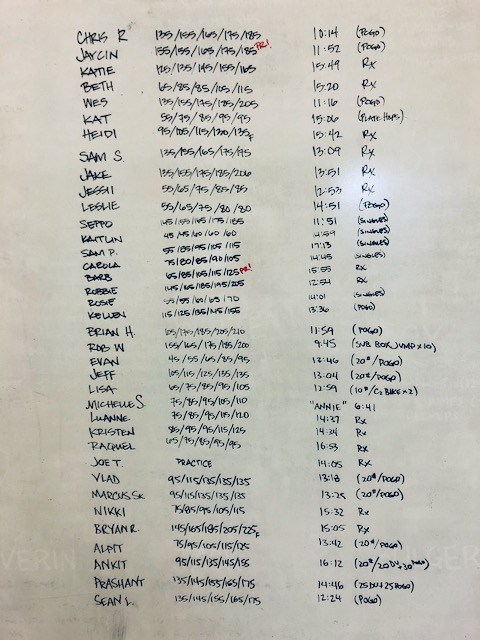 CHRIS R 135/155/165/175/185 10:14 (POGO)
JAYCIN 155/155/165/175/185 PR! 11:52 (POGO)
KATIE 125/135/145/155/165 15:49 Rx
BETH 65/85/85/105/115 15:20 Rx
WES 135/155/175/185/205 11:16 (POGO)
KAT 55/75/85/95/95 15:06 (PLATE HOPS)
HEIDI 95/105/115/130/135F 15:42 Rx
SAM S. 135/155/165/175/195 13:09 Rx
JAKE 135/155/175/185/206 13:51 Rx
JESSII 55/65/75/85/85 12:53 Rx
LESLIE 55/65/75/80/80 14:51 (POGO)
SEPPO 145/155/165/175/185 11:51 (SINGLES)
KAITLIN 45/45/60/60/60 14:59 (SINGLES)
SAM P. 55/85/95/105/115 17:13 (SINGLES)
CAROLA 75/80/85/90/105 14:45 SINGLES
BARB 65/85/105/115/125 PR! 15:55 RX
ROBBIE 145/165/185/195/205 12:54 RX
ROSIE 55/55/60/65/70 14:01 (SINGLES)
KELLEN 115/125/135/145/155 13:36 (POGO)
BRIAN H. 165/175/185/205/210 11:59 (POGO)
ROB W 155/165/175/185/200 9:45 (SUB BOX JUMP x10)
EVAN 45/55/65/85/95 13:46 (20#/POGO)
JEFF 105/115/125/135/135 13:04 (20#/POGO)
LISA 65/75/85/95/105 12:59 (10#/C2 BIKE x2)
MICHELLE S. 75/85/95/105/110 "ANNIE" 6:41
LUANNE 75/85/95/115/120 14:37 Rx
KRISTEN 85/95/95/115/125 14:34 Rx
RAQUEL 65/75/85/95/95 16:53 Rx
JOE T. PRACTICE 14:05 Rx
VLAD 95/115/135/135/135 13:18 (20#/POGO)
MARCUS SK 95/115/135/135/135 13:25 (20#/POGO)
NIKKI 75/85/95/105/115 15:32 Rx
BRYAN R. 145/165/185/205/225F 15:05 Rx
ALPIT 75/95/105/115/125 13:42 (20#/POGO)
ANKIT 95/115/135/145/155 16:12 (20#/20DU+30 POGO)
PRASHANT 135/145/155/165/175 14:46 (25DU+25POGO)
SEAN L. 135/145/155/165/175 12:24 (POGO)